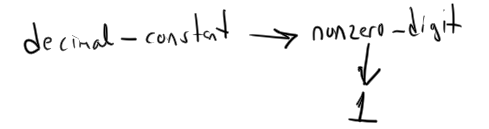 decimal-constant → nonzero-digit
↓
1